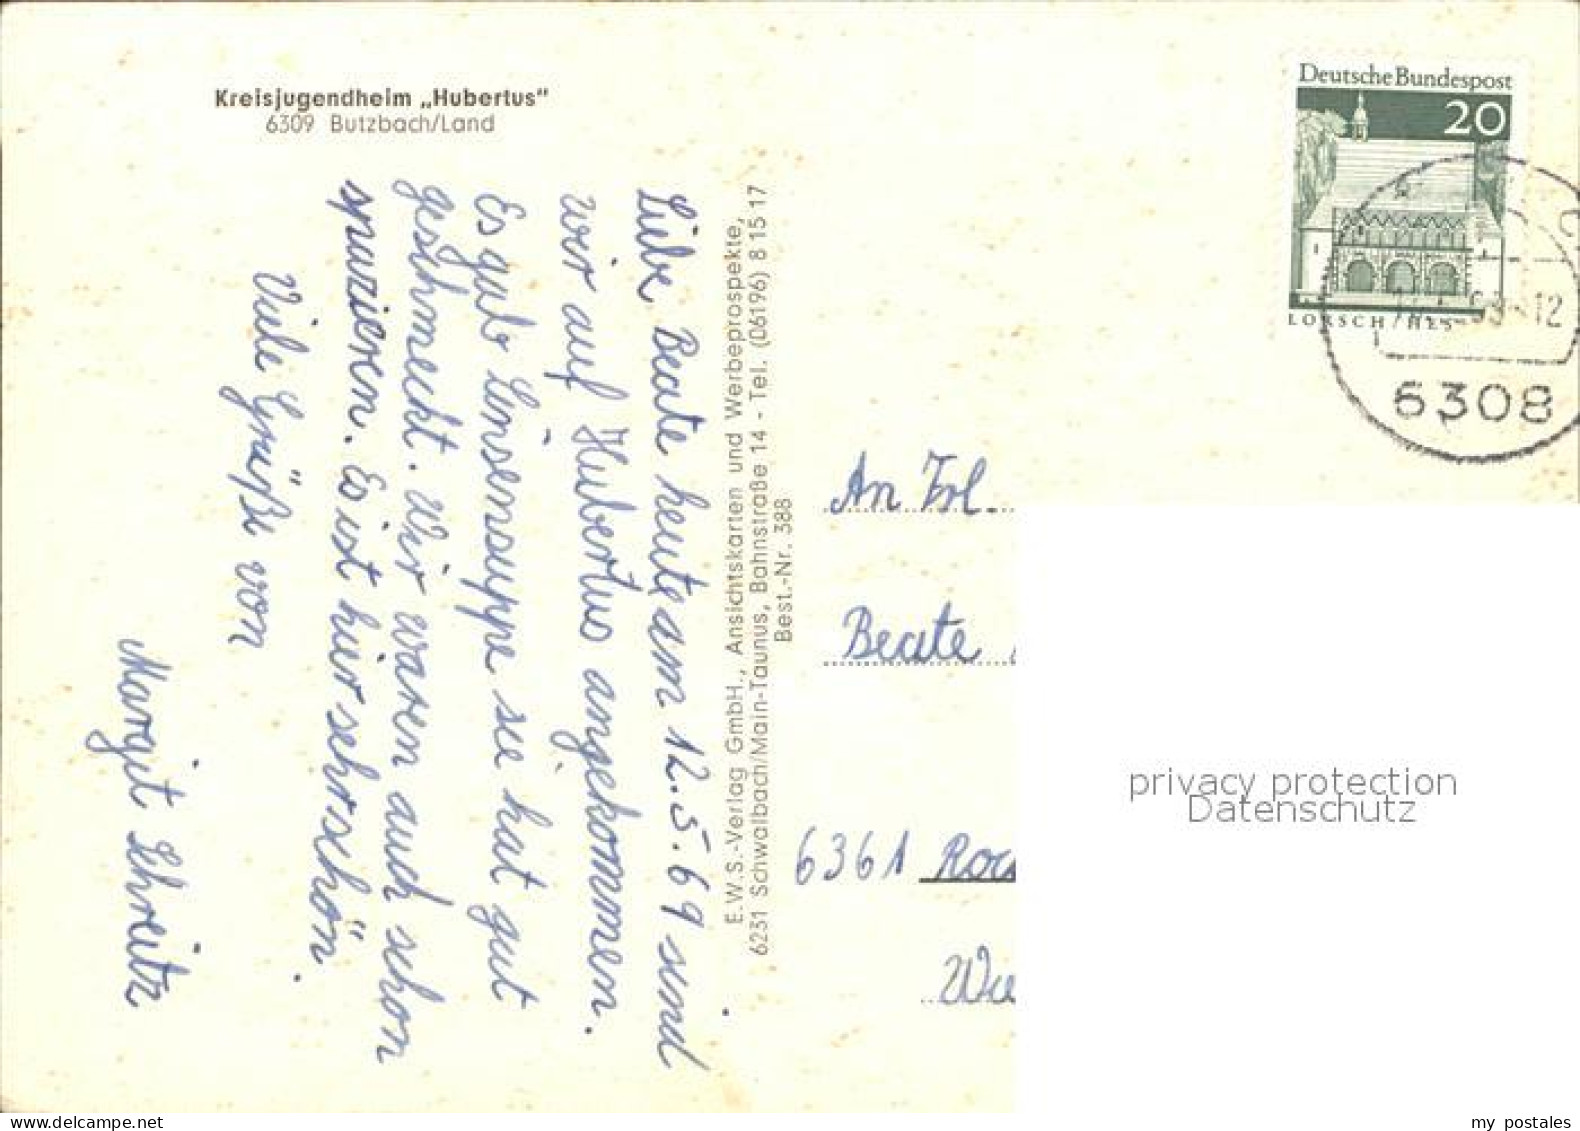 Kreisjugendheim „Hubertus“
6309 Butzbach/Land
Liebe Beate heute am 12.5.69 sind
wir auf Hubertus angekommen.
Es gab Linsensuppe sie hat gut
geschmeckt. Wir waren auch schon
spazieren. Es ist hier sehr schön.
Viele Grüße von
Margit Schreitz
E.W.S.-Verlag GmbH., Ansichtskarten und Werbeprospekte,
6231 Schwalbach/Main-Taunus, Bahnstraße 14 - Tel. (06196) 8 15 17
Best.-Nr. 388
Deutsche Bundespost
20
LORSCH/HES
12
6308
An Frl.
Beate
6361
privacy protection
Datenschutz
my postales
www.delcampe.net